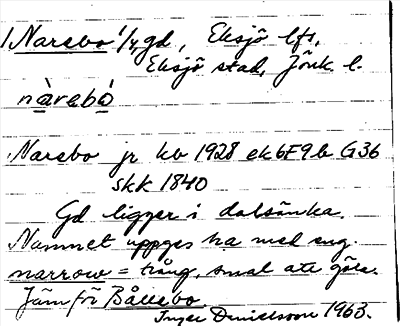 Narebo 1/4 gd, Eksjö lfs,
Eksjö stad, Jönk. l.
nàrebó
Narebo jr kb 1928 ek 6F9b G36
skk 1840
Gd ligger i dalsänka.
Namnet uppges ha med eng.
narrow = trång, smal att göra.
Jämför Bållebo
Inger Danielsson 1963.